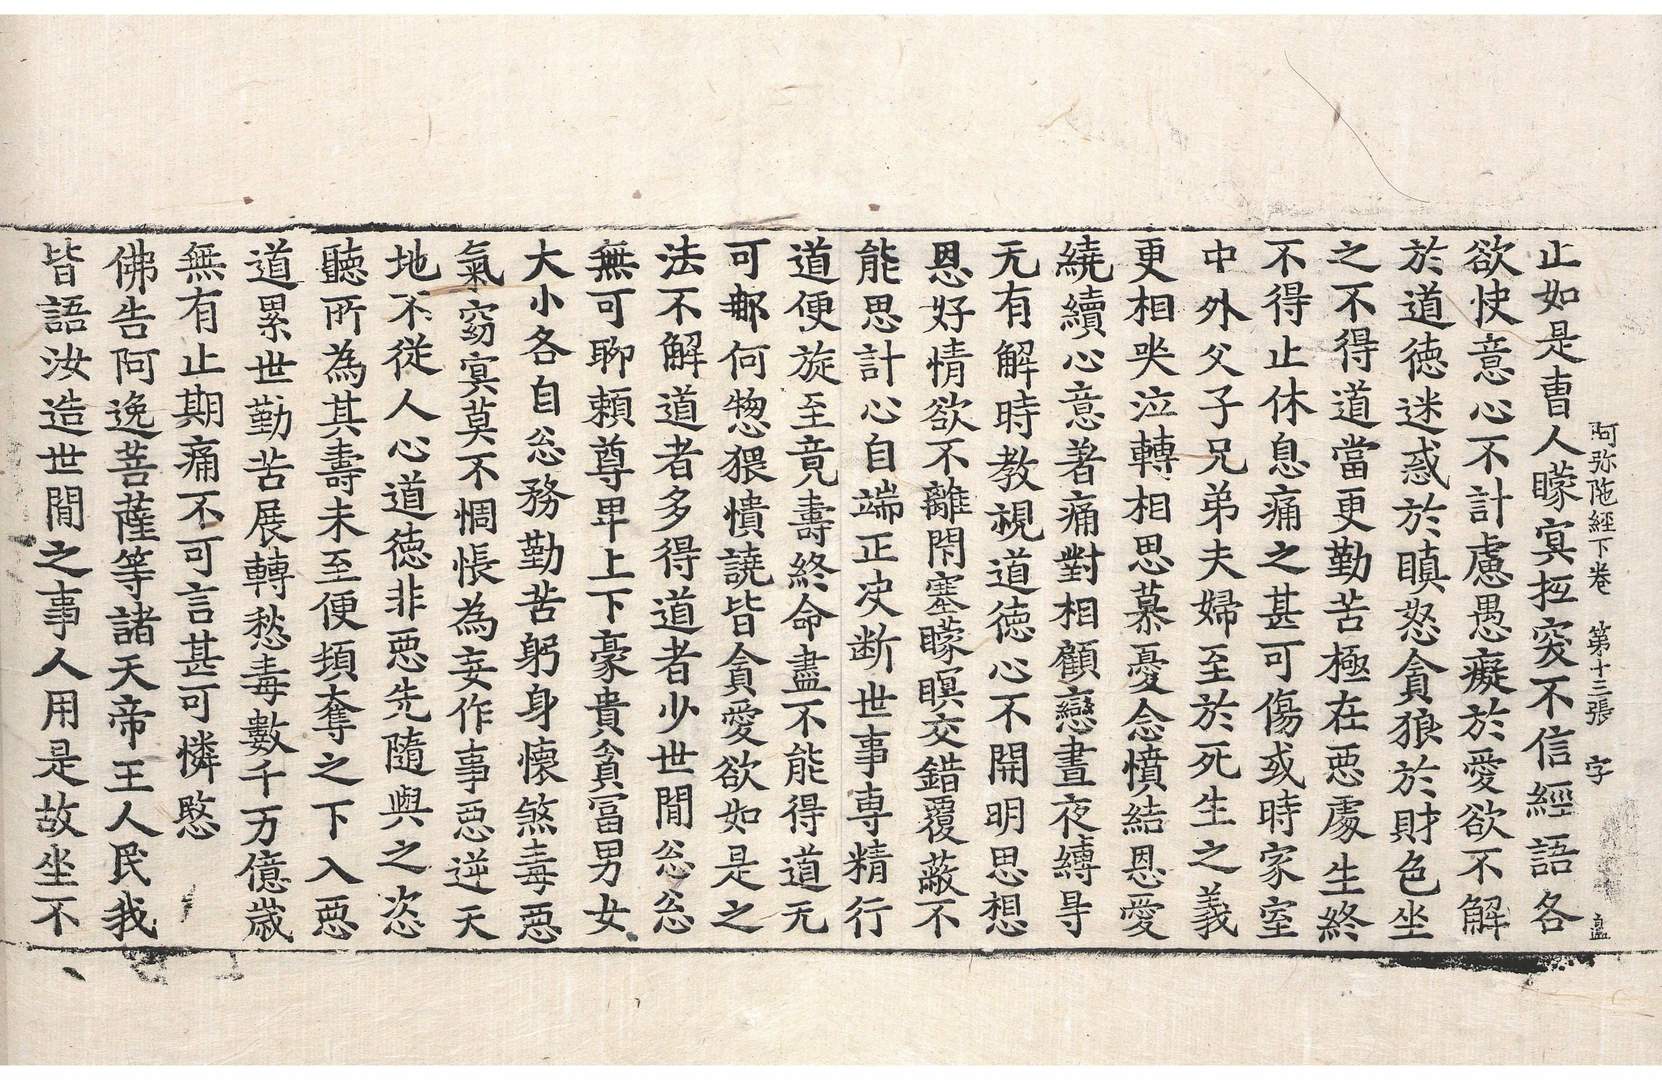 阿弥陁經下卷　第十三張　字
止如是曺人矇冥抵突不信經語各
欲快意心不計慮愚癡於愛欲不解
於道德迷惑於瞋怒貪狼於財色坐
之不得道當更勤苦極在惡處生終
不得止休息痛之甚可傷或時家室
中外父子兄弟夫婦至於死生之義
更相哭泣轉相思慕憂念憤結恩愛
繞續心意著痛對相顧戀晝夜縛㝵
无有解時教視道德心不開明思想
恩好情欲不離閇塞矇瞑交錯覆蔽不
能思計心自端正决断世事専精行
道便旋至竟壽終命盡不能得道无
可𨚗何惣猥憒譊皆貪愛欲如是之
法不解道者多得道者少世閒忩忩
無可聊頼尊卑上下豪貴貧冨男女
大小各自忩務勤苦躬身懷煞毒惡
氣窈冥莫不惆悵為妄作事惡逆天
地不従人心道德非惡先隨與之恣
聽所為其壽未至便頓奪之下入惡
道累世勤苦展轉愁毒數千万億歳
無有止期痛不可言甚可憐愍
佛告阿逸菩薩等諸天帝王人民我
皆語汝造世閒之事人用是故坐不